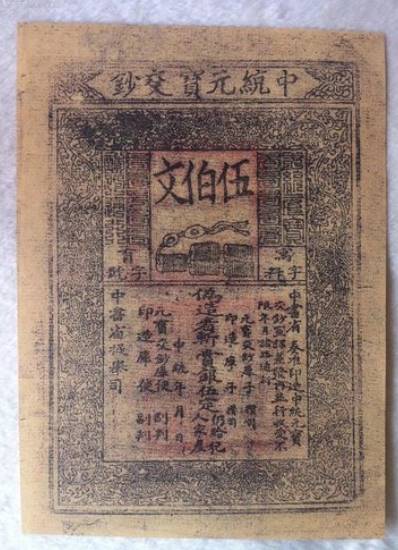 中統元寳交鈔
伍伯文
字料
字號
中書省 奏准印造中統元寳
交鈔宣課差役內並行收受不
限年月諸路通行
元寳交鈔庫子 攢司
印造庫子 攢司
偽造者斬賞銀伍定仍給犯人家產
中統 年 月 日
元寳交鈔庫使 副判
印造庫使 副判
中書省提舉司